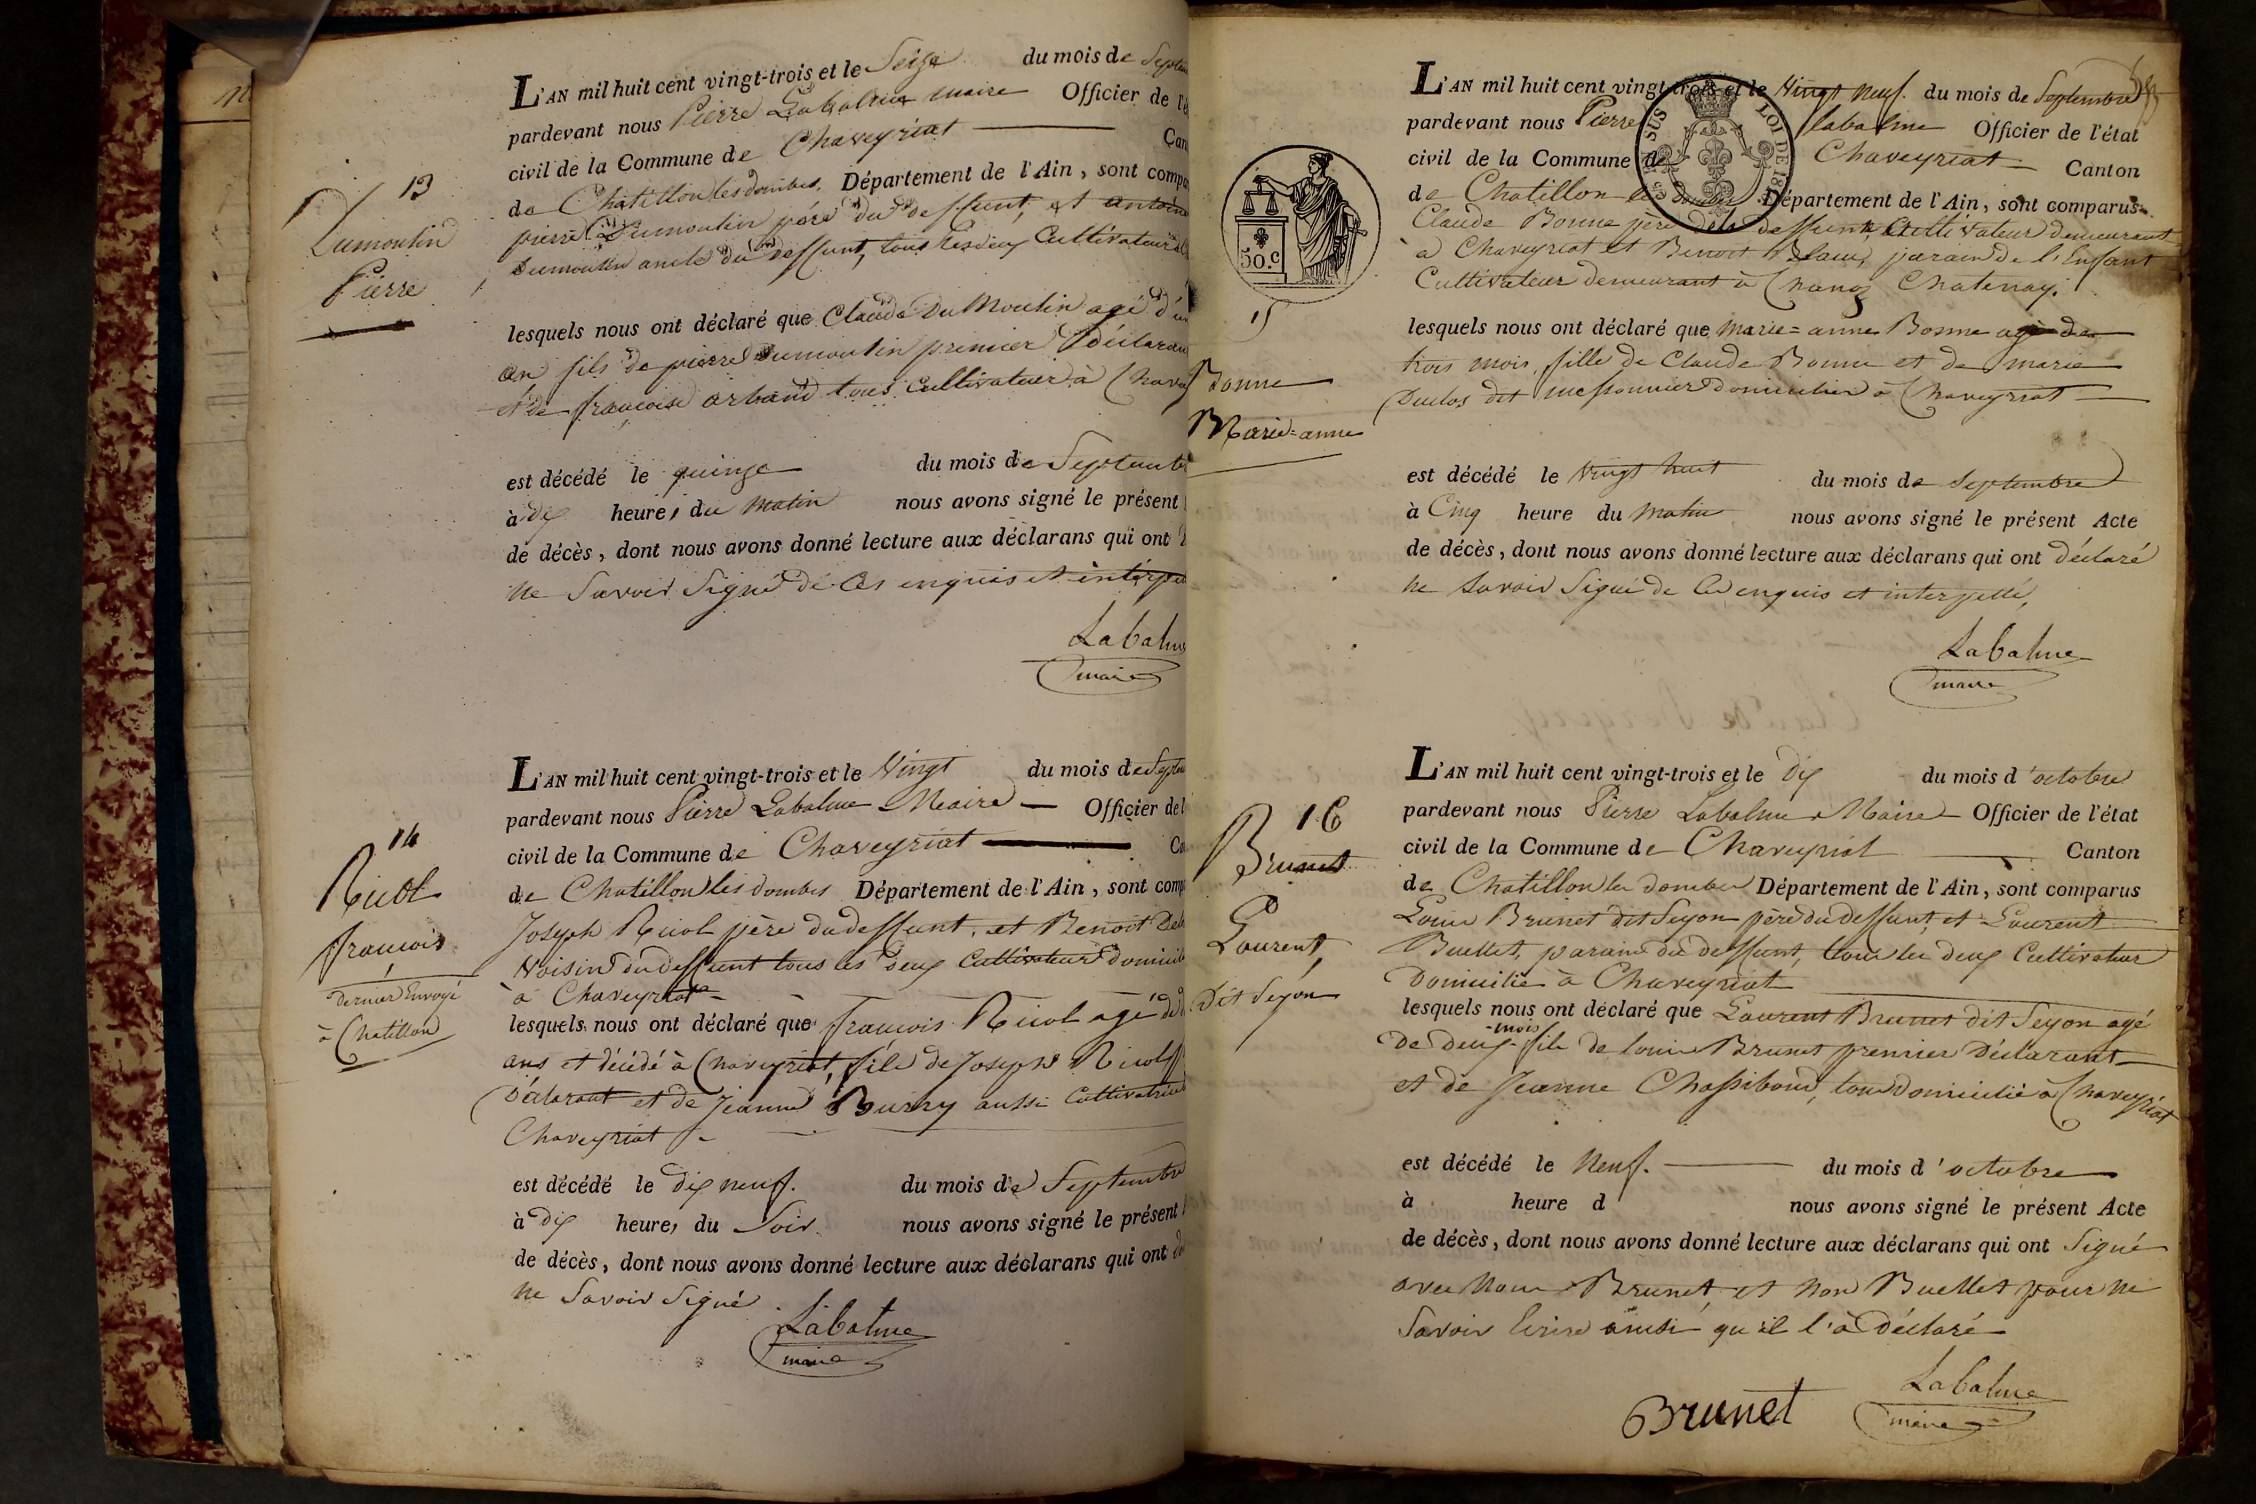 13
Dumoulin
Pierre
L'AN mil huit cent vingt-trois et le Seize du mois de Septem
pardevant nous Pierre Labalme maire Officier de l'é
civil de la Commune de Chaveyriat Can
de Chatillon les dombes, Département de l'Ain, sont compa
pierre Dumoulin père du deffunt, et antoine
Dumoulin oncle du deffunt, tous les deux Cultivateur
lesquels nous ont déclaré que Claude Du Moulin agé d'un
an fils de pierre Dumoulin premier Déclarant
et de françoise arband tous cultivateur à Chavey
est décédé le quinze du mois de Septembre
à dix heures du matin nous avons signé le présent
de décès, dont nous avons donné lecture aux déclarans qui ont
ne Savoir Signé de Ces enquis et interpe
Labalme
maire
14
Nicol
francois
dernier Envoyé
à Chatillon
L'AN mil huit cent vingt-trois et le Vingt du mois de Septem
pardevant nous Pierre Labalme Maire Officier de l
civil de la Commune de Chaveyriat Ca
de Chatillon les dombes Département de l'Ain, sont comp
Joseph Nicol père du deffunt, et Benoit
Voisin du deffunt tous les deux Cultivateur domicil
à Chaveyriat
lesquels nous ont déclaré que francois Nicol agé de
ans et décédé à Chaveyriat, fils de Joseph Nicol
Déclarant et de Jeanne Burry aussi Cultivatrice
Chaveyriat
est décédé le dix neuf. du mois de Septembre
à dix heures du Soir. nous avons signé le présent
de décès, dont nous avons donné lecture aux déclarans qui ont
ne Savoir Signé
Labalme
maire
50.C
15
Bonne
Marie=anne
L'AN mil huit cent vingt-trois et le Vingt neuf. du mois de Septembre
pardevant nous Pierre labalme Officier de l'état
civil de la Commune de Chaveyriat Canton
de Chatillon les dombes Département de l'Ain, sont comparus
Claude Bonne père de la deffunte Cultivateur demeurant
à Chaveyriat et Benoit Blanc, parain de l'Enfant
Cultivateur demeurant à Chanoz Chatenay.
lesquels nous ont déclaré que marie=anne Bonne agé de
trois mois, fille de Claude Bonne et de marie
Duclos dit messonnier domicilier à Chaveyriat
est décédé le Vingt huit du mois de Septembre
à Cinq heure du matin nous avons signé le présent Acte
de décès, dont nous avons donné lecture aux déclarans qui ont déclaré
ne Savoir Signé de Ce enquis et interpellé,
Labalme
maire
16
Brunet
Laurent,
Dit Seyon
L'AN mil huit cent vingt-trois et le Dix du mois d'octobre
pardevant nous Pierre Labalme Maire Officier de l'état
civil de la Commune de Chaveyriat Canton
de Chatillon les dombes Département de l'Ain, sont comparus
Louis Brunet dit Seyon père du deffunt, et Laurent
Buellet, parain du deffunt, tous les deux Cultivateur
Domicilié à Chaveyriat
lesquels nous ont déclaré que Laurent Brunet dit Seyon agé
de deux mois fils de louis Brunet premier Déclarant
et de Jeanne Chassiboud, tous domicilié à Chaveyriat
est décédé le Neuf. du mois d'octobre
à heure d nous avons signé le présent Acte
de décès, dont nous avons donné lecture aux déclarans qui ont Signé
avec Nous Brunet, et Non Buellet pour ne
Savoir Ecrire ainsi qu'il l'à Déclaré
Labalme
Brunet maire